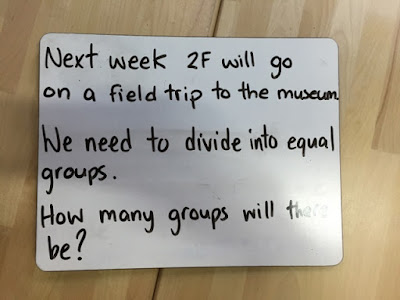 Next week 2F will go
on a field trip to the museum
We need to divide into equal
groups.
How many groups will there
be?